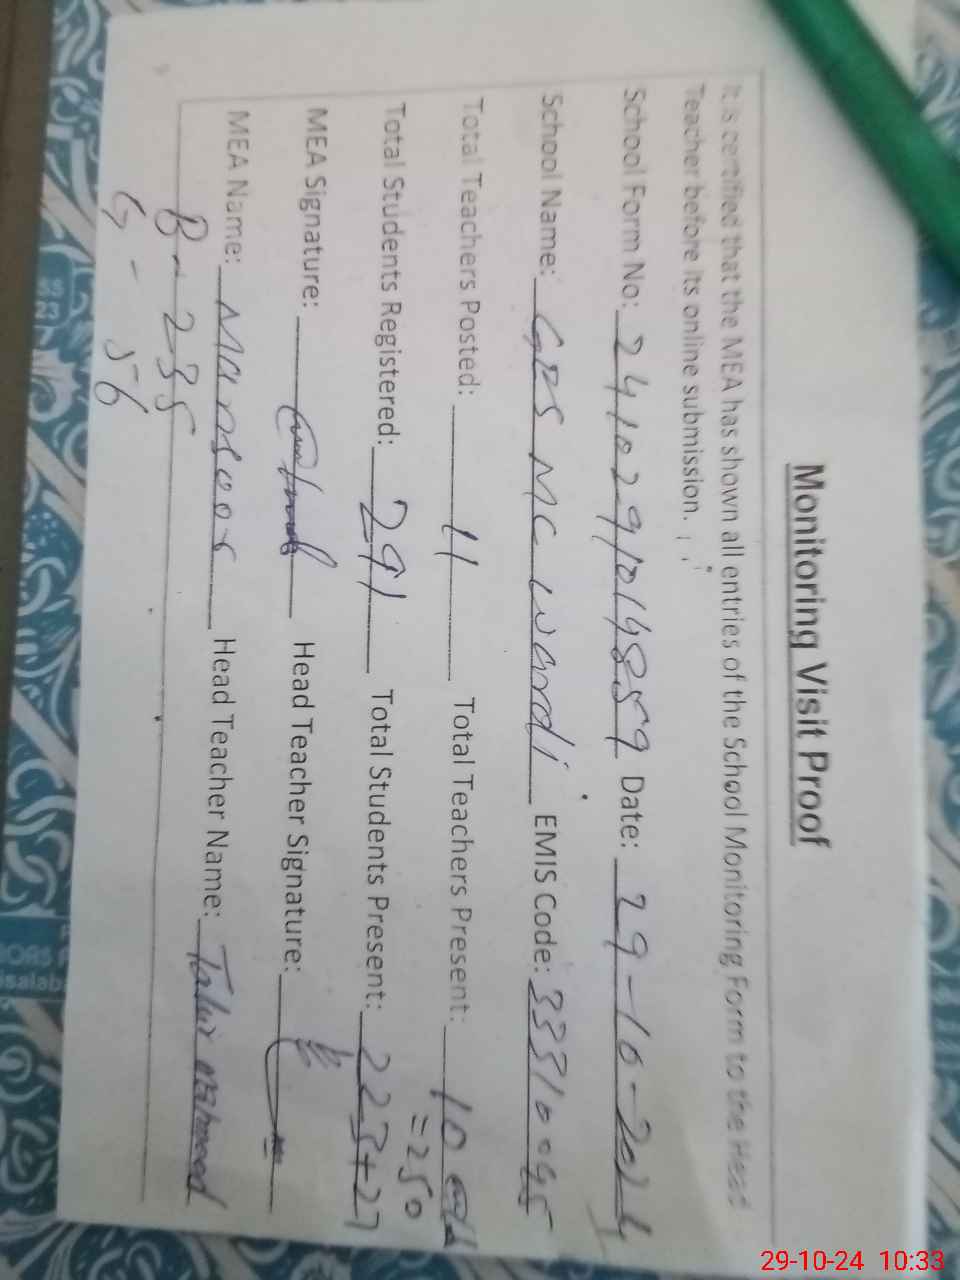 Monitoring Visit Proof
It is certified that the MEA has shown all entries of the School Monitoring Form to the Head
Teacher before its online submission.
School Form No: 2410291014859 Date: 29-10-2024
School Name: GPS MC Wardi EMIS Code: 33310045
Total Teachers Posted: 11 Total Teachers Present: 10
=250
Total Students Registered: 291 Total Students Present: 223+27
MEA Signature: Head Teacher Signature:
MEA Name: Mansoor Head Teacher Name: Tahir
B - 235
G - 56
29-10-24 10:33